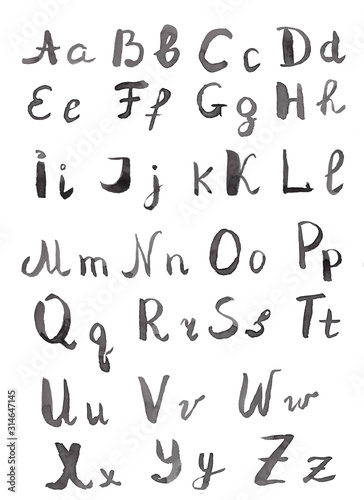 Aa Bb Cc Dd
Ee Ff Gg Hh
Ii Jj kK Ll
Mm Nn Oo Pp
Qq Rr Ss Tt
Uu Vv Ww
Xx Yy Zz
Adobe Stock | #314647145